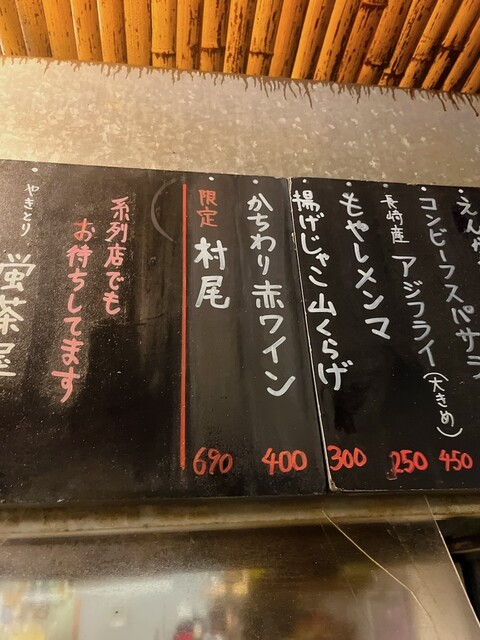 えん
コンビーフスパサラ
長崎産 アジフライ(大きめ)
450
もやしメンマ
250
揚げじゃこ山くらげ
300
かちわり赤ワイン
400
限定 村尾
690
系列店でも
お待ちしてます
やきとり 蛍茶屋